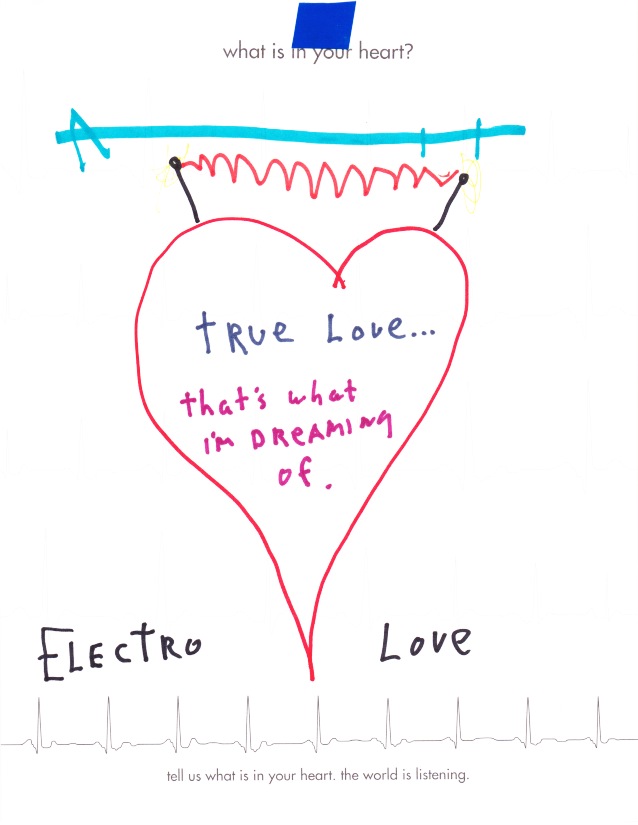 what is in your heart?
true Love...
that's what
i'm DREAMING
of.
ELECTRO Love
tell us what is in your heart. the world is listening.